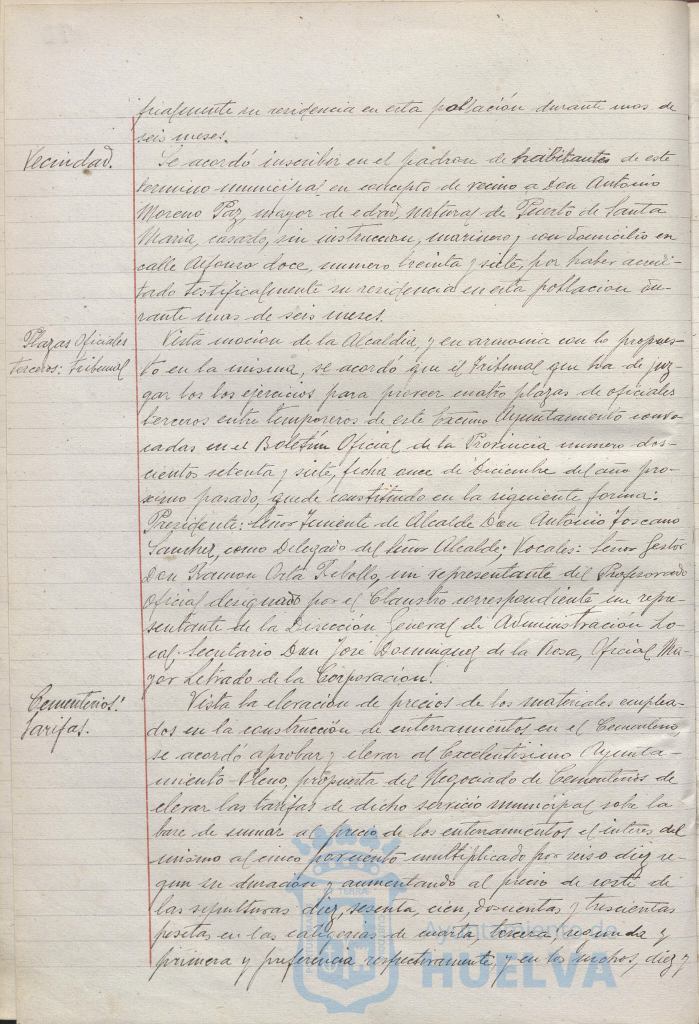 ficalmente su residencia en esta población durante mas de
seis meses.
Vecindad.
Se acordó inscribir en el padron de habitantes de este
termino municipal en concepto de vecino a Don Antonio
Moreno Paz, mayor de edad, natural de Puerto de Santa
Maria, casado, sin instruccion, marinero, con domicilio en
calle Alfonso doce, numero treinta y siete, por haber acredi-
tado testificalmente su residencia en esta poblacion du-
rante mas de seis meses.
Plazas Oficiales
terceros: Tribunal
Vista mocion de la Alcaldia, y en armonia con lo propues-
to en la misma, se acordó que el Tribunal que ha de juz-
gar los los ejercicios para proveer cuatro plazas de oficiales
terceros entre temporeros de este Excmo Ayuntamiento convo-
cadas en el Boletin Oficial de la Provincia numero dos-
cientos setenta y siete, fecha once de Diciembre del año pro-
ximo pasado, quede constituido en la siguiente forma:
Presidente: Señor Teniente de Alcalde Don Antonio Toscano
Sanchez, como Delegado del Señor Alcalde; Vocales: Señor Gestor
Don Ramon Orta Rebollo, un representante del Profesorado
Oficial designado por el Claustro correspondiente un repre-
sentante de la Dirección General de Administración Lo-
cal. Secretario Don José Dominguez de la Rosa, Oficial Ma-
yor Letrado de la Corporacion.
Cementerios:
tarifas.
Vista la elevacion de precios de los materiales emplea-
dos en la construcción de enterramientos en el Cementerio,
se acordó aprobar y elevar al Excelentisimo Ayunta-
miento Pleno, propuesta del Negociado de Cementerios de
elevar las tarifas de dicho servicio municipal sobre la
base de sumar al precio de los enterramientos el interes del
mismo al cinco por ciento multiplicado por seis o diez se-
gun su duracion y aumentando al precio de coste de
las sepulturas diez, sesenta, cien, doscientas y trescientas
pesetas en las categorias de cuarta, tercera, segunda y
primera y preferencia respectivamente, y en los nichos, diez y
Ayuntamiento de
HUELVA